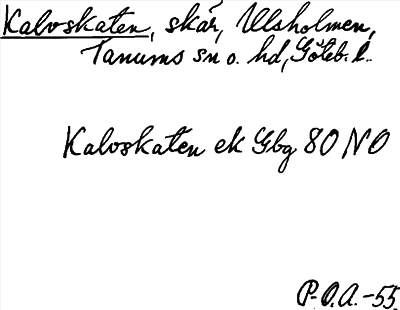 Kalvskaten, skär, Ulsholmen,
Tanums sn o. hd, Göteb. l.
Kalvskaten ek Gbg 80 NO
P.O.A.-55.